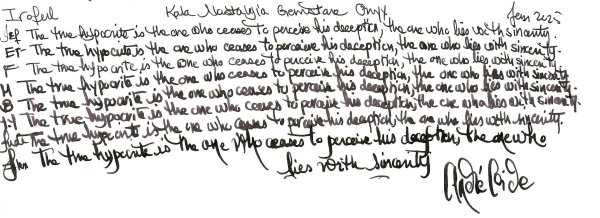 Irofeul Kala Nostalgia Gemstone Onyx Jan 2025
EF The true hypocrite is the one who ceases to perceive his deception, the one who lies with sincerity.
EF The true hypocrite is the one who ceases to perceive his deception, the one who lies with sincerity.
F The true hypocrite is the one who ceases to perceive his deception, the one who lies with sincerity.
M The true hypocrite is the one who ceases to perceive his deception, the one who lies with sincerity.
B The true hypocrite is the one who ceases to perceive his deception, the one who lies with sincerity.
The true hypocrite is the one who ceases to perceive his deception, the one who lies with sincerity.
The true hypocrite is the one who ceases to perceive his deception, the one who lies with sincerity.
The true hypocrite is the one who ceases to perceive his deception, the one who
lies with sincerity
André Gide